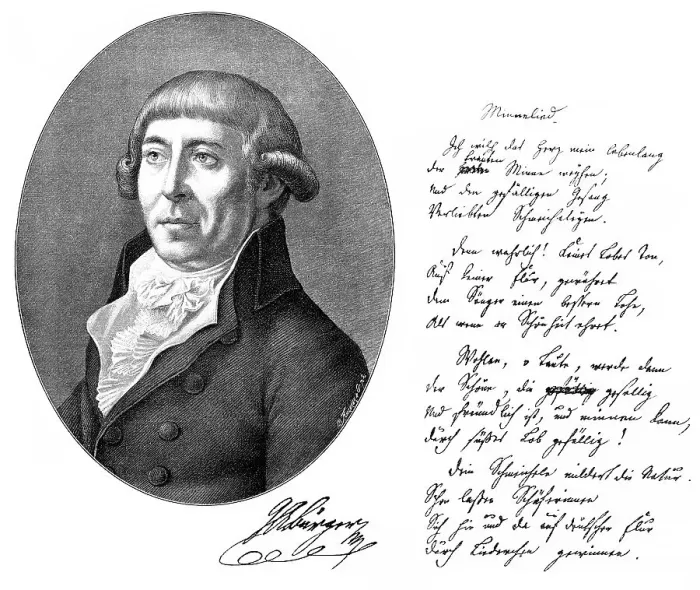 Minnelied.
Ich will das Herz mein Lebenlang
der trauten Minne weyhen;
Und den gefälligen Gesang
Verliebten Schmeicheleyen.
Denn wahrlich! Keines Lobes Ton,
Auf keiner Flur, gewähret
dem Sänger einen bessern Lohn,
Als wenn er Schönheit ehret.
Wohlan, o Laute, werde denn
der Schöne, die gesellig
Und freundlich ist, und minnen kann,
durch süßes Lob gefällig!
Dein Schmeicheln mildert die Natur.
Schon lassen Schäferinnen
Sich hie und da auf deutscher Flur
durch Liederchen gewinnen.
GABürger